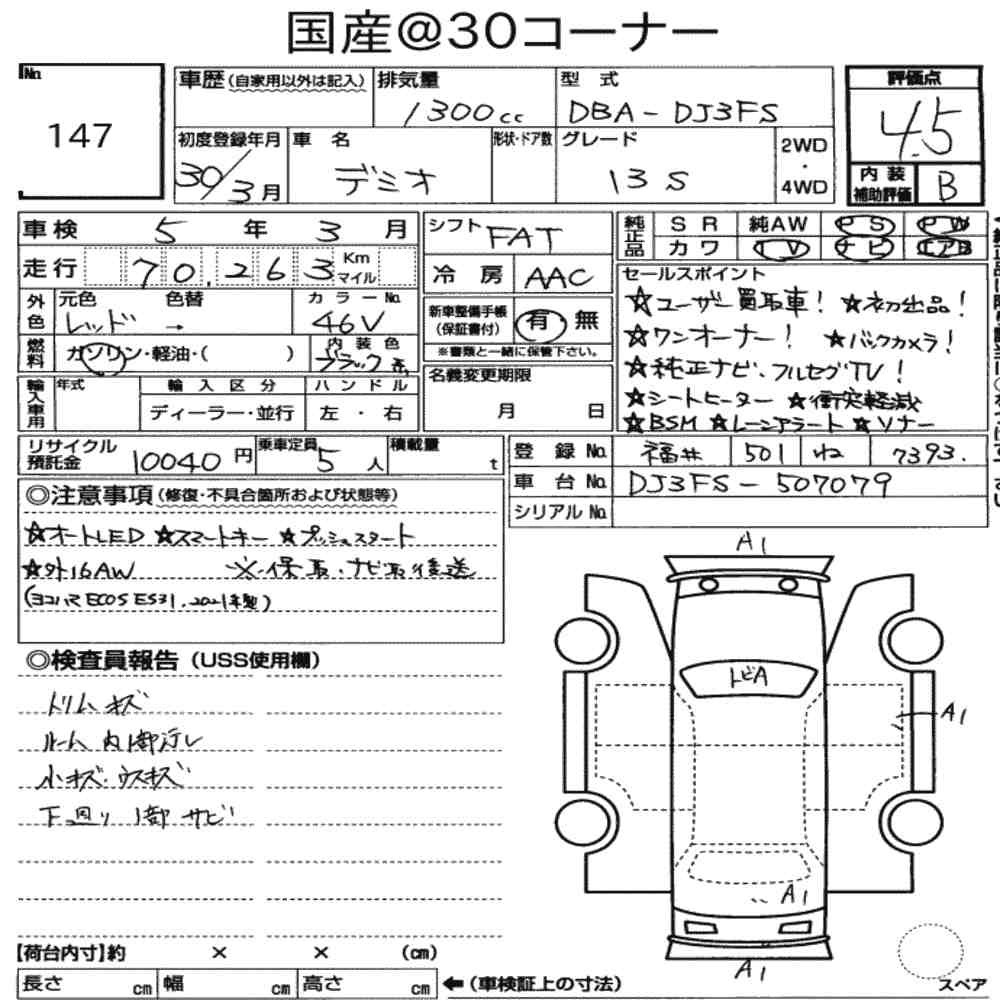 国産@30コーナー
No.
147
車歴(自家用以外は記入)
排気量
1300cc
型 式
DBA-DJ3FS
評価点
4.5
内装補助評価
B
初度登録年月
30/3月
車 名
デミオ
形状・ドア数
グレード
13S
2WD
・
4WD
車検 5 年 3 月
走行 70,263 Km マイル
外色
元色 レッド → 色替
カラーNo. 46V
燃料
ガソリン・軽油・( )
内装色 ブラック系
輸入車用
年式
輸入区分
ディーラー・並行
ハンドル
左・右
シフト FAT
冷房 AAC
新車整備手帳(保証書付)
有・無
※書類と一緒に保管下さい。
名義変更期限
月 日
純正品
SR 純AW PS PW
カワ TV ナビ エアB
セールスポイント
☆ユーザー買取車! ☆初出品!
☆ワンオーナー! ☆バックカメラ!
☆純正ナビ、フルセグTV!
☆シートヒーター ☆衝突軽減
☆BSM ☆レーンアラート ☆ソナー
リサイクル預託金 10040 円
乗車定員 5 人
積載量 t
登録No. 福井 501 ね 7393.
車台No. DJ3FS-507079
シリアルNo.
◎注意事項(修復・不具合箇所および状態等)
☆オートLED ☆スマートキー ☆プッシュスタート
☆外16AW ※保取・ナビ取後送
(ヨコハマECOS ES31. 2021年製)
◎検査員報告(USS使用欄)
トリムキズ
ルーム内1部汚レ
小キズ・ウスキズ
下廻り1部サビ
A1
トビA
A1
A1
A1
スペア
【荷台内寸】約 × × (cm)
長さ cm 幅 cm 高さ cm ←(車検証上の寸法)